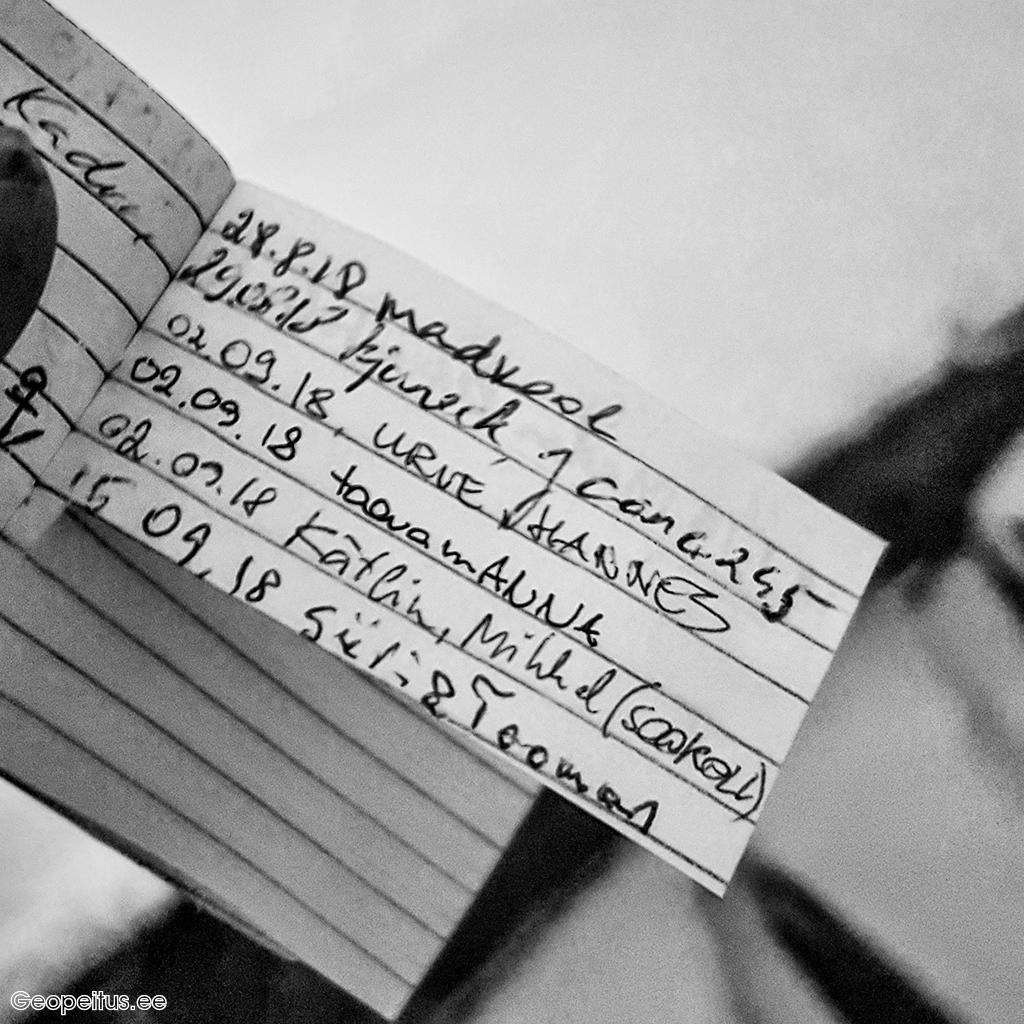 Kadri
28.8.18 madrool
29.08.18 kjurach, carl4245
02.09.18. URVE, HANNES
02.09.18 taavamANNA
02.09.18 Kätlin, Mihkel (SOOKOLL)
15 09.18 Siiri & Tooman
Geopeitus.ee